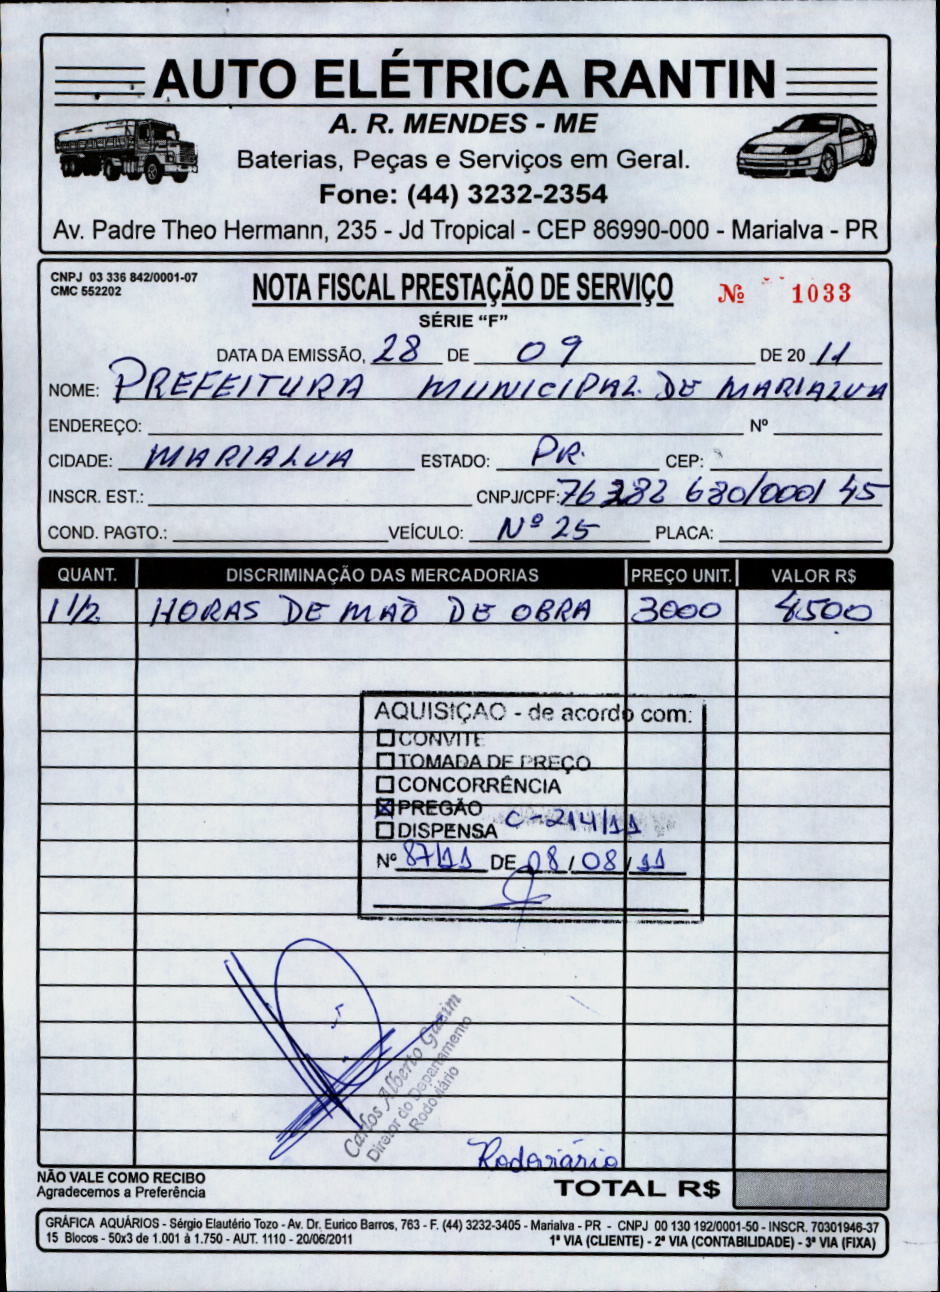 AUTO ELÉTRICA RANTIN
A. R. MENDES - ME
Baterias, Peças e Serviços em Geral.
Fone: (44) 3232-2354
Av. Padre Theo Hermann, 235 - Jd Tropical - CEP 86990-000 - Marialva - PR
CNPJ 03 336 842/0001-07
CMC 552202
NOTA FISCAL PRESTAÇÃO DE SERVIÇO
Nº 1033
SÉRIE “F”
DATA DA EMISSÃO, 28 DE 09 DE 20 11
NOME: PREFEITURA MUNICIPAL DE MARIALVA
ENDEREÇO: Nº
CIDADE: MARIALVA ESTADO: PR. CEP:
INSCR. EST.: CNPJ/CPF: 76 282 680/0001 45
COND. PAGTO.: VEÍCULO: Nº 25 PLACA:
QUANT. DISCRIMINAÇÃO DAS MERCADORIAS PREÇO UNIT. VALOR R$
1 1/2 HORAS DE MAÕ DE OBRA 3000 4500
AQUISIÇAO - de acordo com:
CONVITE
TOMADA DE PREÇO
CONCORRÊNCIA
PREGÃO
DISPENSA C-214/11
Nº 87/11 DE 08/08/11
Carlos Alberto Gazim
Diretor do Departamento
Rodoviário
Rodoviário
NÃO VALE COMO RECIBO
Agradecemos a Preferência
TOTAL R$
GRÁFICA AQUÁRIOS - Sérgio Elautério Tozo - Av. Dr. Eurico Barros, 763 - F. (44) 3232-3405 - Marialva - PR - CNPJ 00 130 192/0001-50 - INSCR. 70301946-37
15 Blocos - 50x3 de 1.001 à 1.750 - AUT. 1110 - 20/06/2011 1ª VIA (CLIENTE) - 2ª VIA (CONTABILIDADE) - 3ª VIA (FIXA)